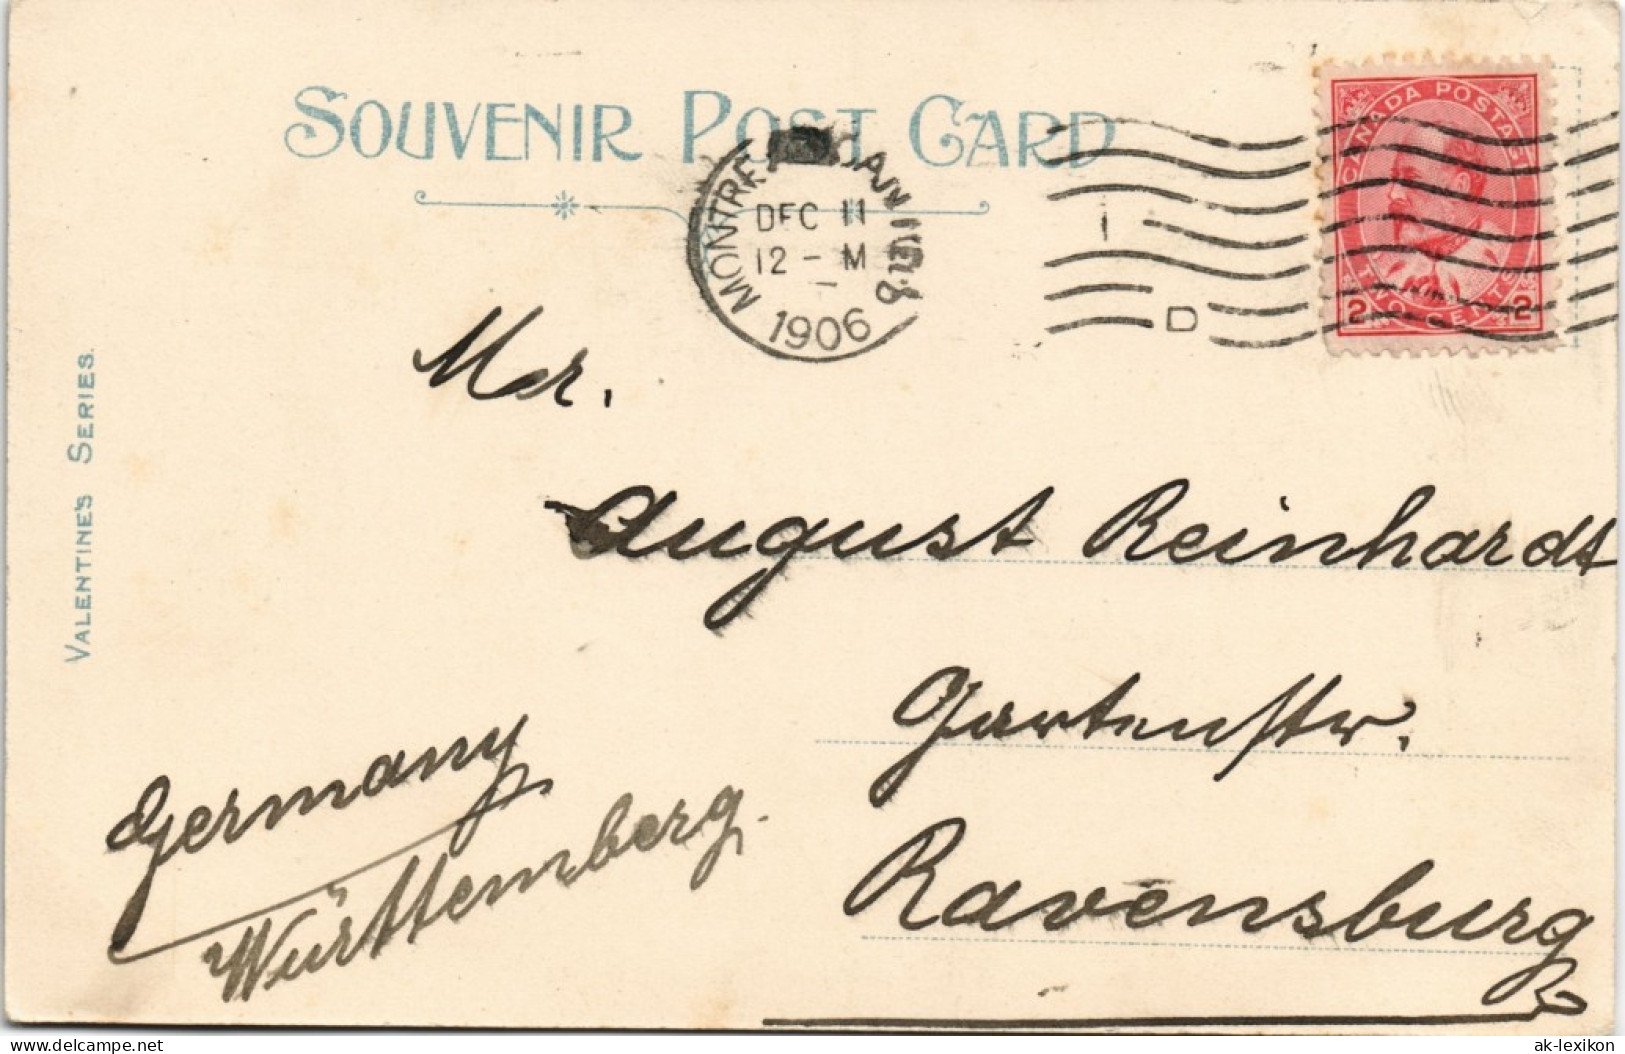 SOUVENIR POST CARD
CANADA POSTAGE
2 TWO CENTS 2
MONTREAL CAN
DEC 11
12 - M
1906
1
D
VALENTINE'S SERIES.
Mr.
August Reinhardt
Gartenstr.
Ravensburg
Germany
Württemberg.
delcampe.net
ak-lexikon